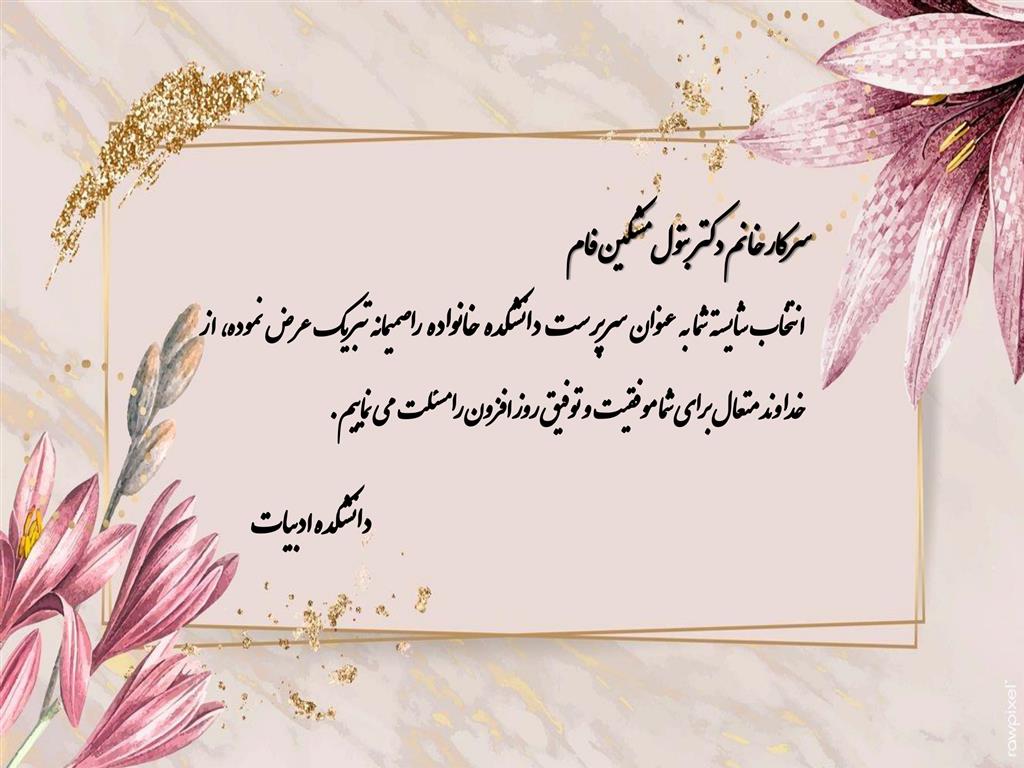 سرکار خانم دکتر بتول مشکین فام
انتخاب شایسته شما به عنوان سرپرست دانشکده خانواده را صمیمانه تبریک عرض نموده، از
خداوند متعال برای شما موفقیت و توفیق روز افزون را مسئلت می نماییم .
دانشکده ادبیات
rawpixel